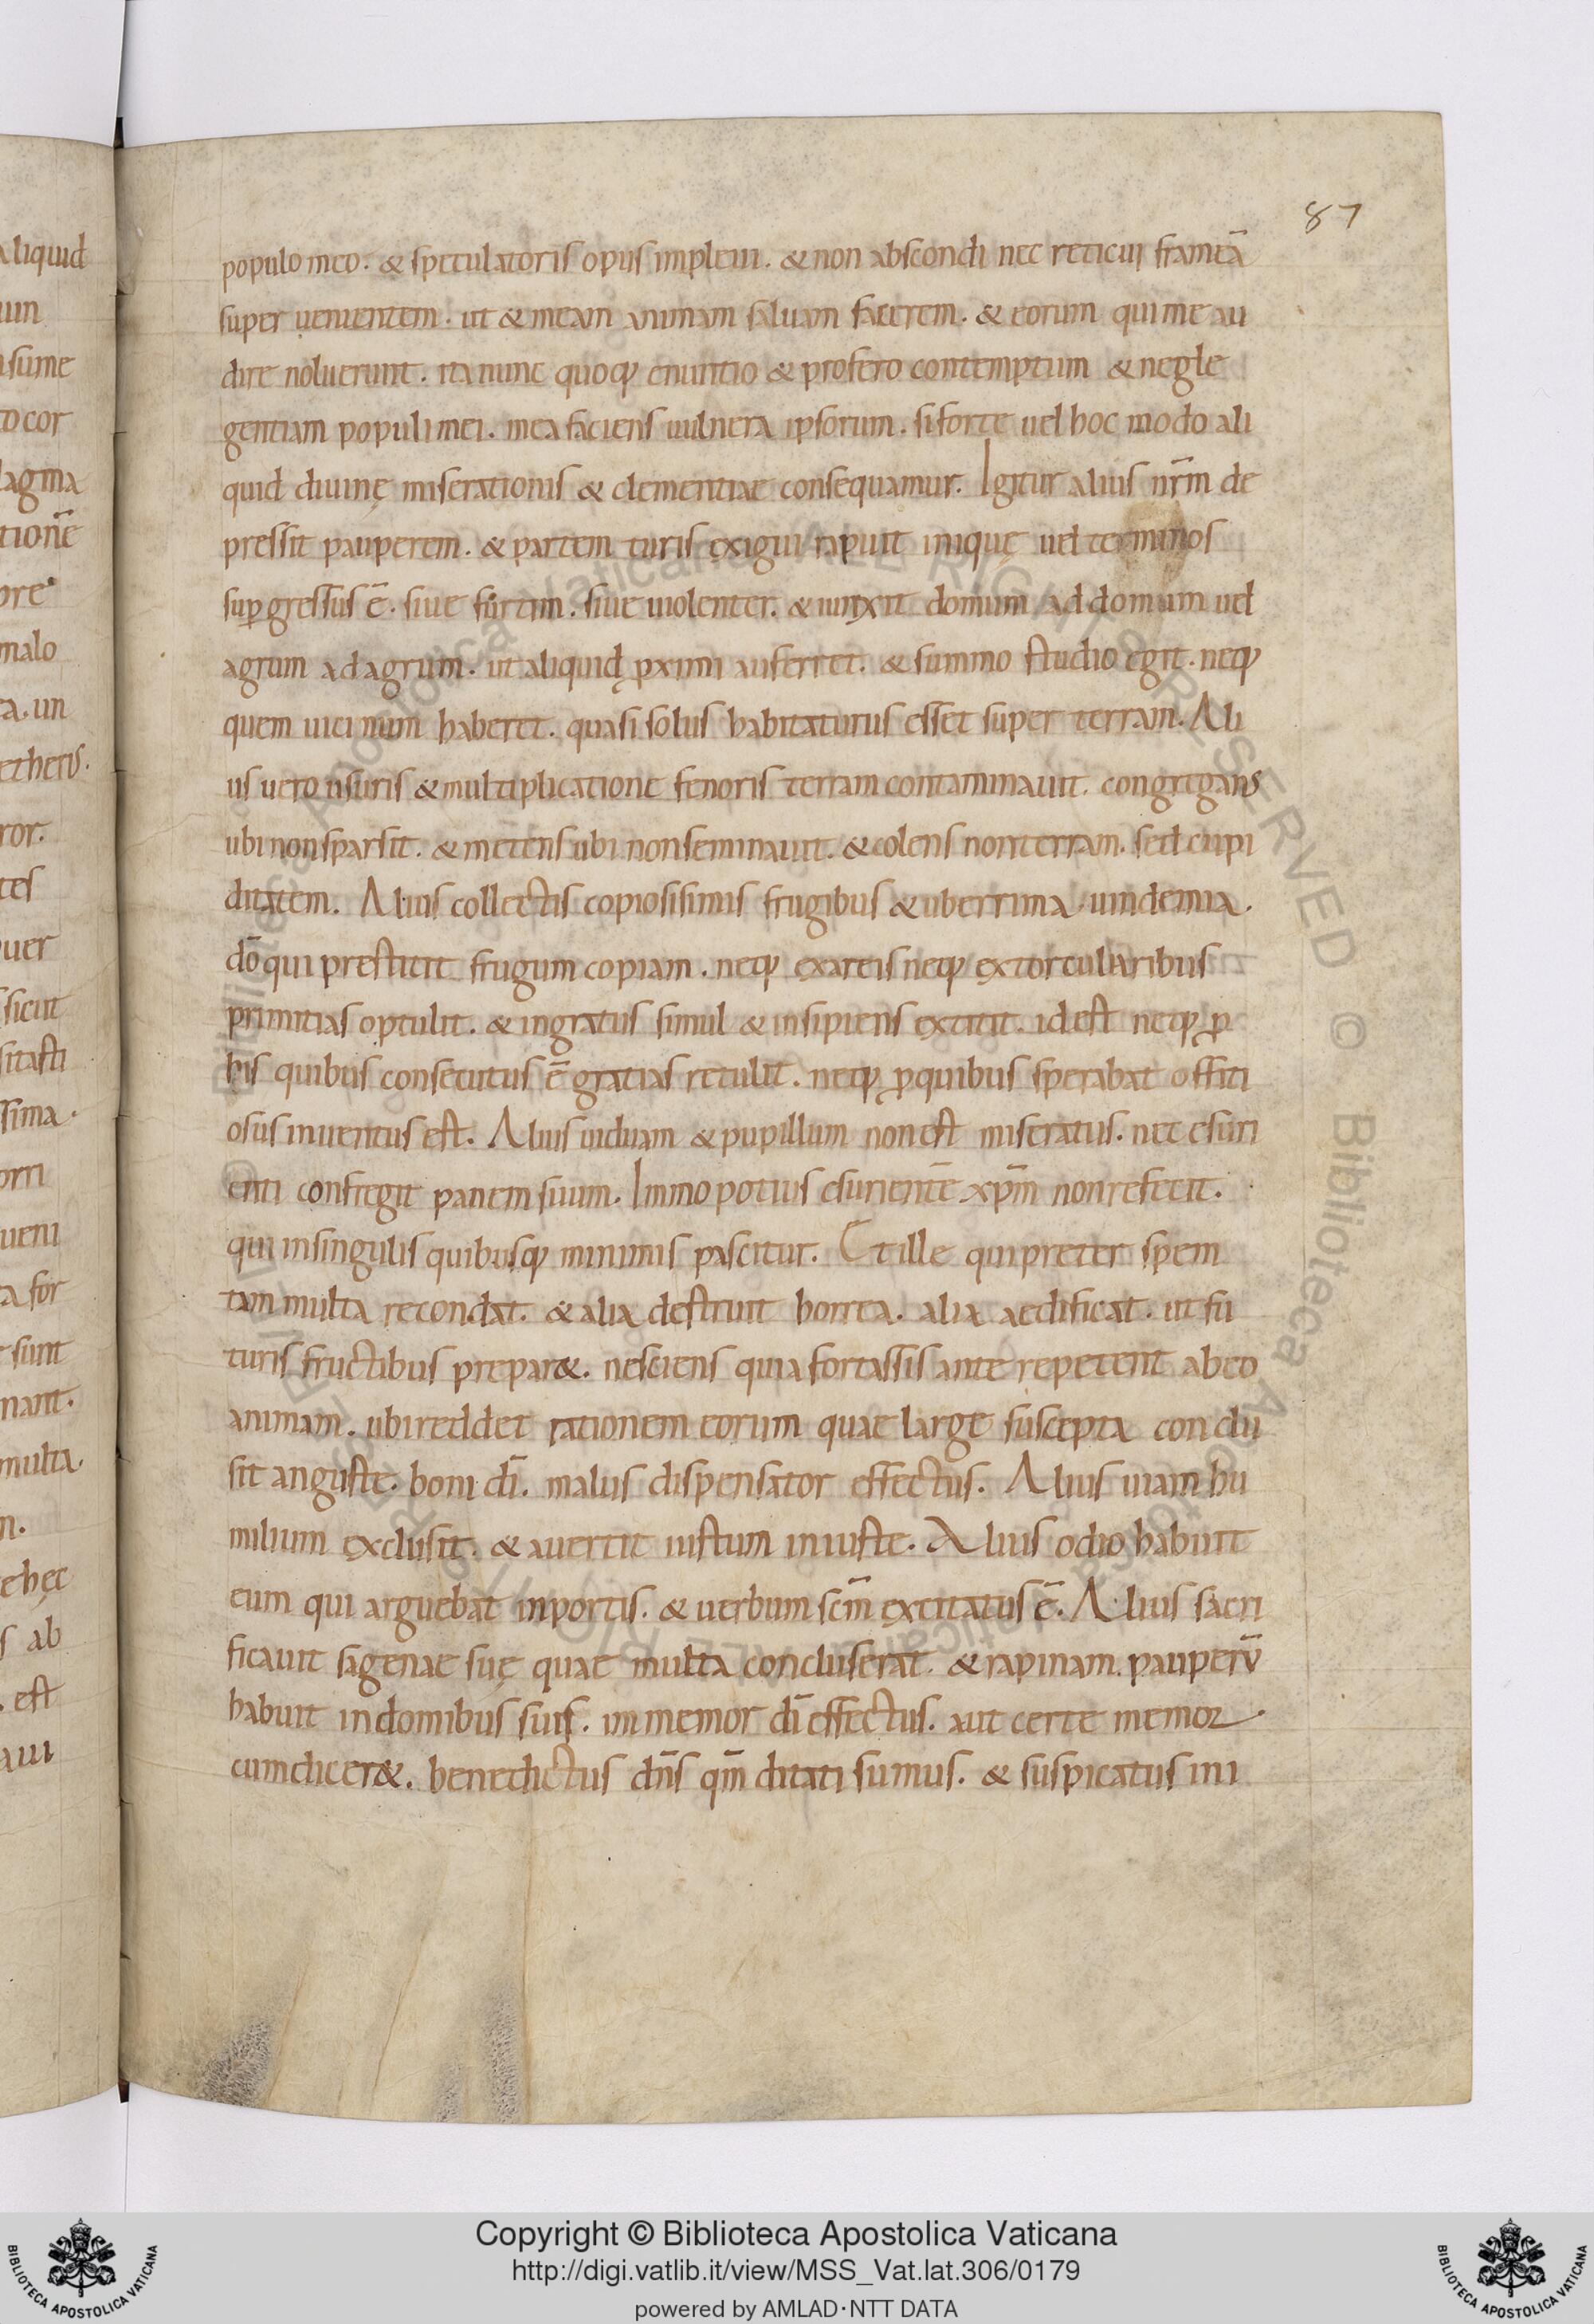 87
populo meo. & speculatoris opus implevi. & non abscondi nec reticui frameā
super uenientem. ut & meam animam saluam facerem. & eorum qui me au
dire noluerunt. ita nunc quoq; enuntio & profero contemptum & negle
gentiam populi mei. mea faciens uulnera ipsorum. si forte uel hoc modo ali
quid diuinę miserationis & clementiae consequamur. Igitur alius nr̄m de
pressit pauperem. & partem turis exigui rapuit iniquę uel terminos
suꝑgressus ē. siue furtim. siue uiolenter. & iunxit domum ad domum uel
agrum ad agrum. ut aliquid ꝓximi auferret. & summo studio egit. neq;
quem uicinum haberet. quasi solus habitaturus esset super terram. Ali
us uero usuris & multiplicatione fenoris terram contaminauit. congregans
ubi non sparsit. & metens ubi non seminauit. & colens non terram. sed cupi
ditatem. Alius collectis copiosisimis frugibus & uberrima uindemia.
dō qui prestitit frugum copiam. neq; ex areis neq; ex torcularibus
primitias optulit. & ingratus simul & insipiens extitit. id est neq; ꝓ
his quibus consecutus ē gratias retulit. neq; ꝓ quibus sperabat offiti
osus inuentus est. Alius uiduam & pupillum non est miseratus. nec esuri
enti confregit panem suum. Immo potius esurientē xpm̄ non refecit.
qui in singulis quibusq; minimis pascitur. Et ille qui preter spem
tam multa recondat. & alia destruit horrea. alia aedificat. ut fu
turis fructibus prepar&. nesciens quia fortassis ante repetent ab eo
animam. ubi reddet rationem eorum quae large suscepta conclu
sit anguste. boni dī. malus dispensator effectus. Alius uiam hu
milium exclusit. & auertit iustum iniuste. Alius odio habuit
eum qui arguebat in portis. & uerbum scm̄ excitatus ē. Alius sacri
ficauit sagenae suę quae multa concluserat. & rapinam pauperū
habuit in domibus suis. immemor dī effectus. aut certe memor
cum dicer&. benedictus dn̄s qm̄ ditati sumus. & suspicatus ini
Copyright © Biblioteca Apostolica Vaticana
http://digi.vatlib.it/view/MSS_Vat.lat.306/0179
powered by AMLAD·NTT DATA